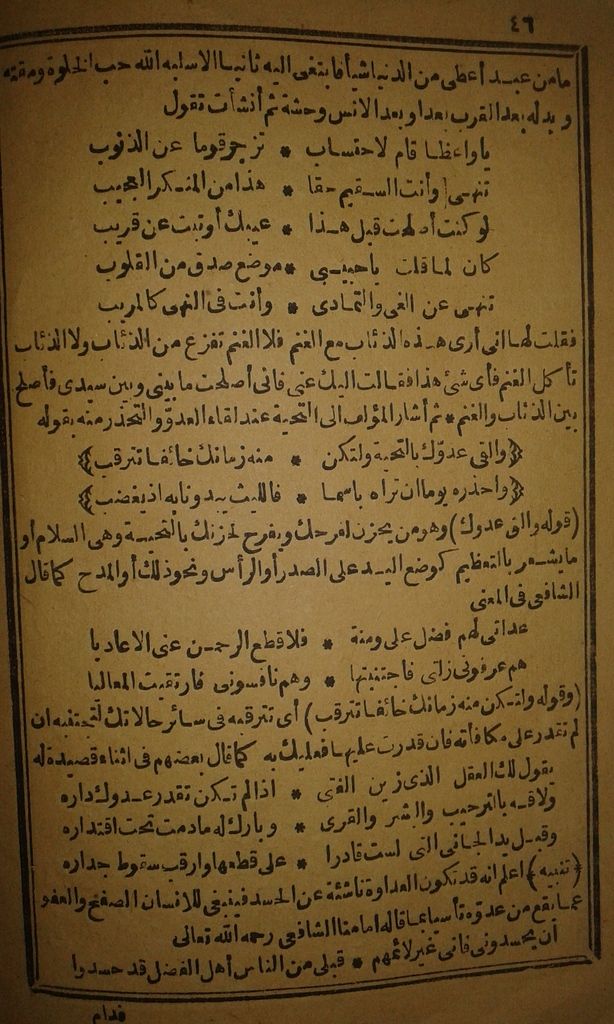 ٤٦
مامن عبد أعطى من الدنيا شيأ فابتغى اليه ثانيا الا سلبه الله حب الخلوة ومقته
وبدله بعد القرب بعدا وبعد الانس وحشة ثم أنشأت تقول
ياواعظا قام لاحتساب * تزجر قوما عن الذنوب
تنهى وأنت السقيم حقا * هذا من المنكر العجيب
لو كنت أصلحت قبل هذا * عيبك أوتبت عن قريب
كان لما قلت ياحبيبى * موضع صدق من القلوب
تنهى عن الغى والتمادى * وأنت فى النهى كالمريب
فقلت لها انى أرى هذه الذئاب مع الغنم فلا الغنم تفزع من الذئاب ولا الذئاب
تأكل الغنم فأى شئ هذا فقالت اليك عنى فانى أصلحت ما بينى وبين سيدى فأصلح
بين الذئاب والغنم * ثم أشار المؤلف الى التحية عند لقاء العدو والتحذر منه بقوله
﴿والقى عدوك بالتحية ولتكن * منه زمانك خائفا تترقب﴾
﴿واحذره يوما ان تراه باسما * فالليث يبدو نابه اذ يغضب﴾
(قوله والق عدوك) وهو من يحزن لفرحك ويفرح لحزنك بالتحية وهى السلام أو
مايشعر بالتعظيم كوضع اليد على الصدر أو الرأس ونحو ذلك أو المدح كما قال
الشافعى فى المعنى
عداتى لهم فضل على ومنة * فلا قطع الرحمن عنى الاعاديا
هم عرفونى زلتى فاجتنبتها * وهم نافسونى فارتقيت المعاليا
(وقوله ولتكن منه زمانك خائفا تترقب) أى تترقبه فى سائر حالاتك لتجتنبه ان
لم تقدر على مكافأته فان قدرت عليها فعليك به كما قال بعضهم فى اثناء قصيدة له
يقول لك العقل الذى زين الفتى * اذا لم تكن تقدر عدوك داره
ولاقه بالترحيب والبشر والقرى * وبارك له مادمت تحت اقتداره
وقبل يد الجانى التى لست قادرا * على قطعها وارقب سقوط جداره
﴿تنبيه﴾ اعلم انه قد تكون العداوة ناشئة عن الحسد فينبغى للانسان الصفح والعفو
عما يقع من عدوه تأسيا بما قاله امامنا الشافعى رحمه الله تعالى
أن يحسدونى فانى غير لائمهم * قبلى من الناس أهل الفضل قد حسدوا
فدام